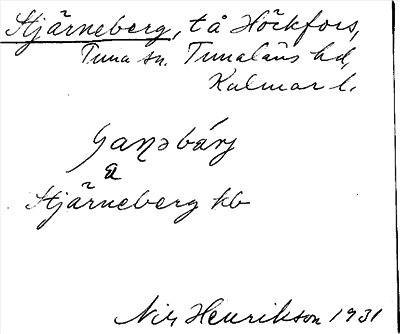 Stjärneberg, t å Höckfors,
Tuna sn. Tunaläns hd,
Kalmar l.
a
Stjärneberg kb
Nils Henrikson 1931